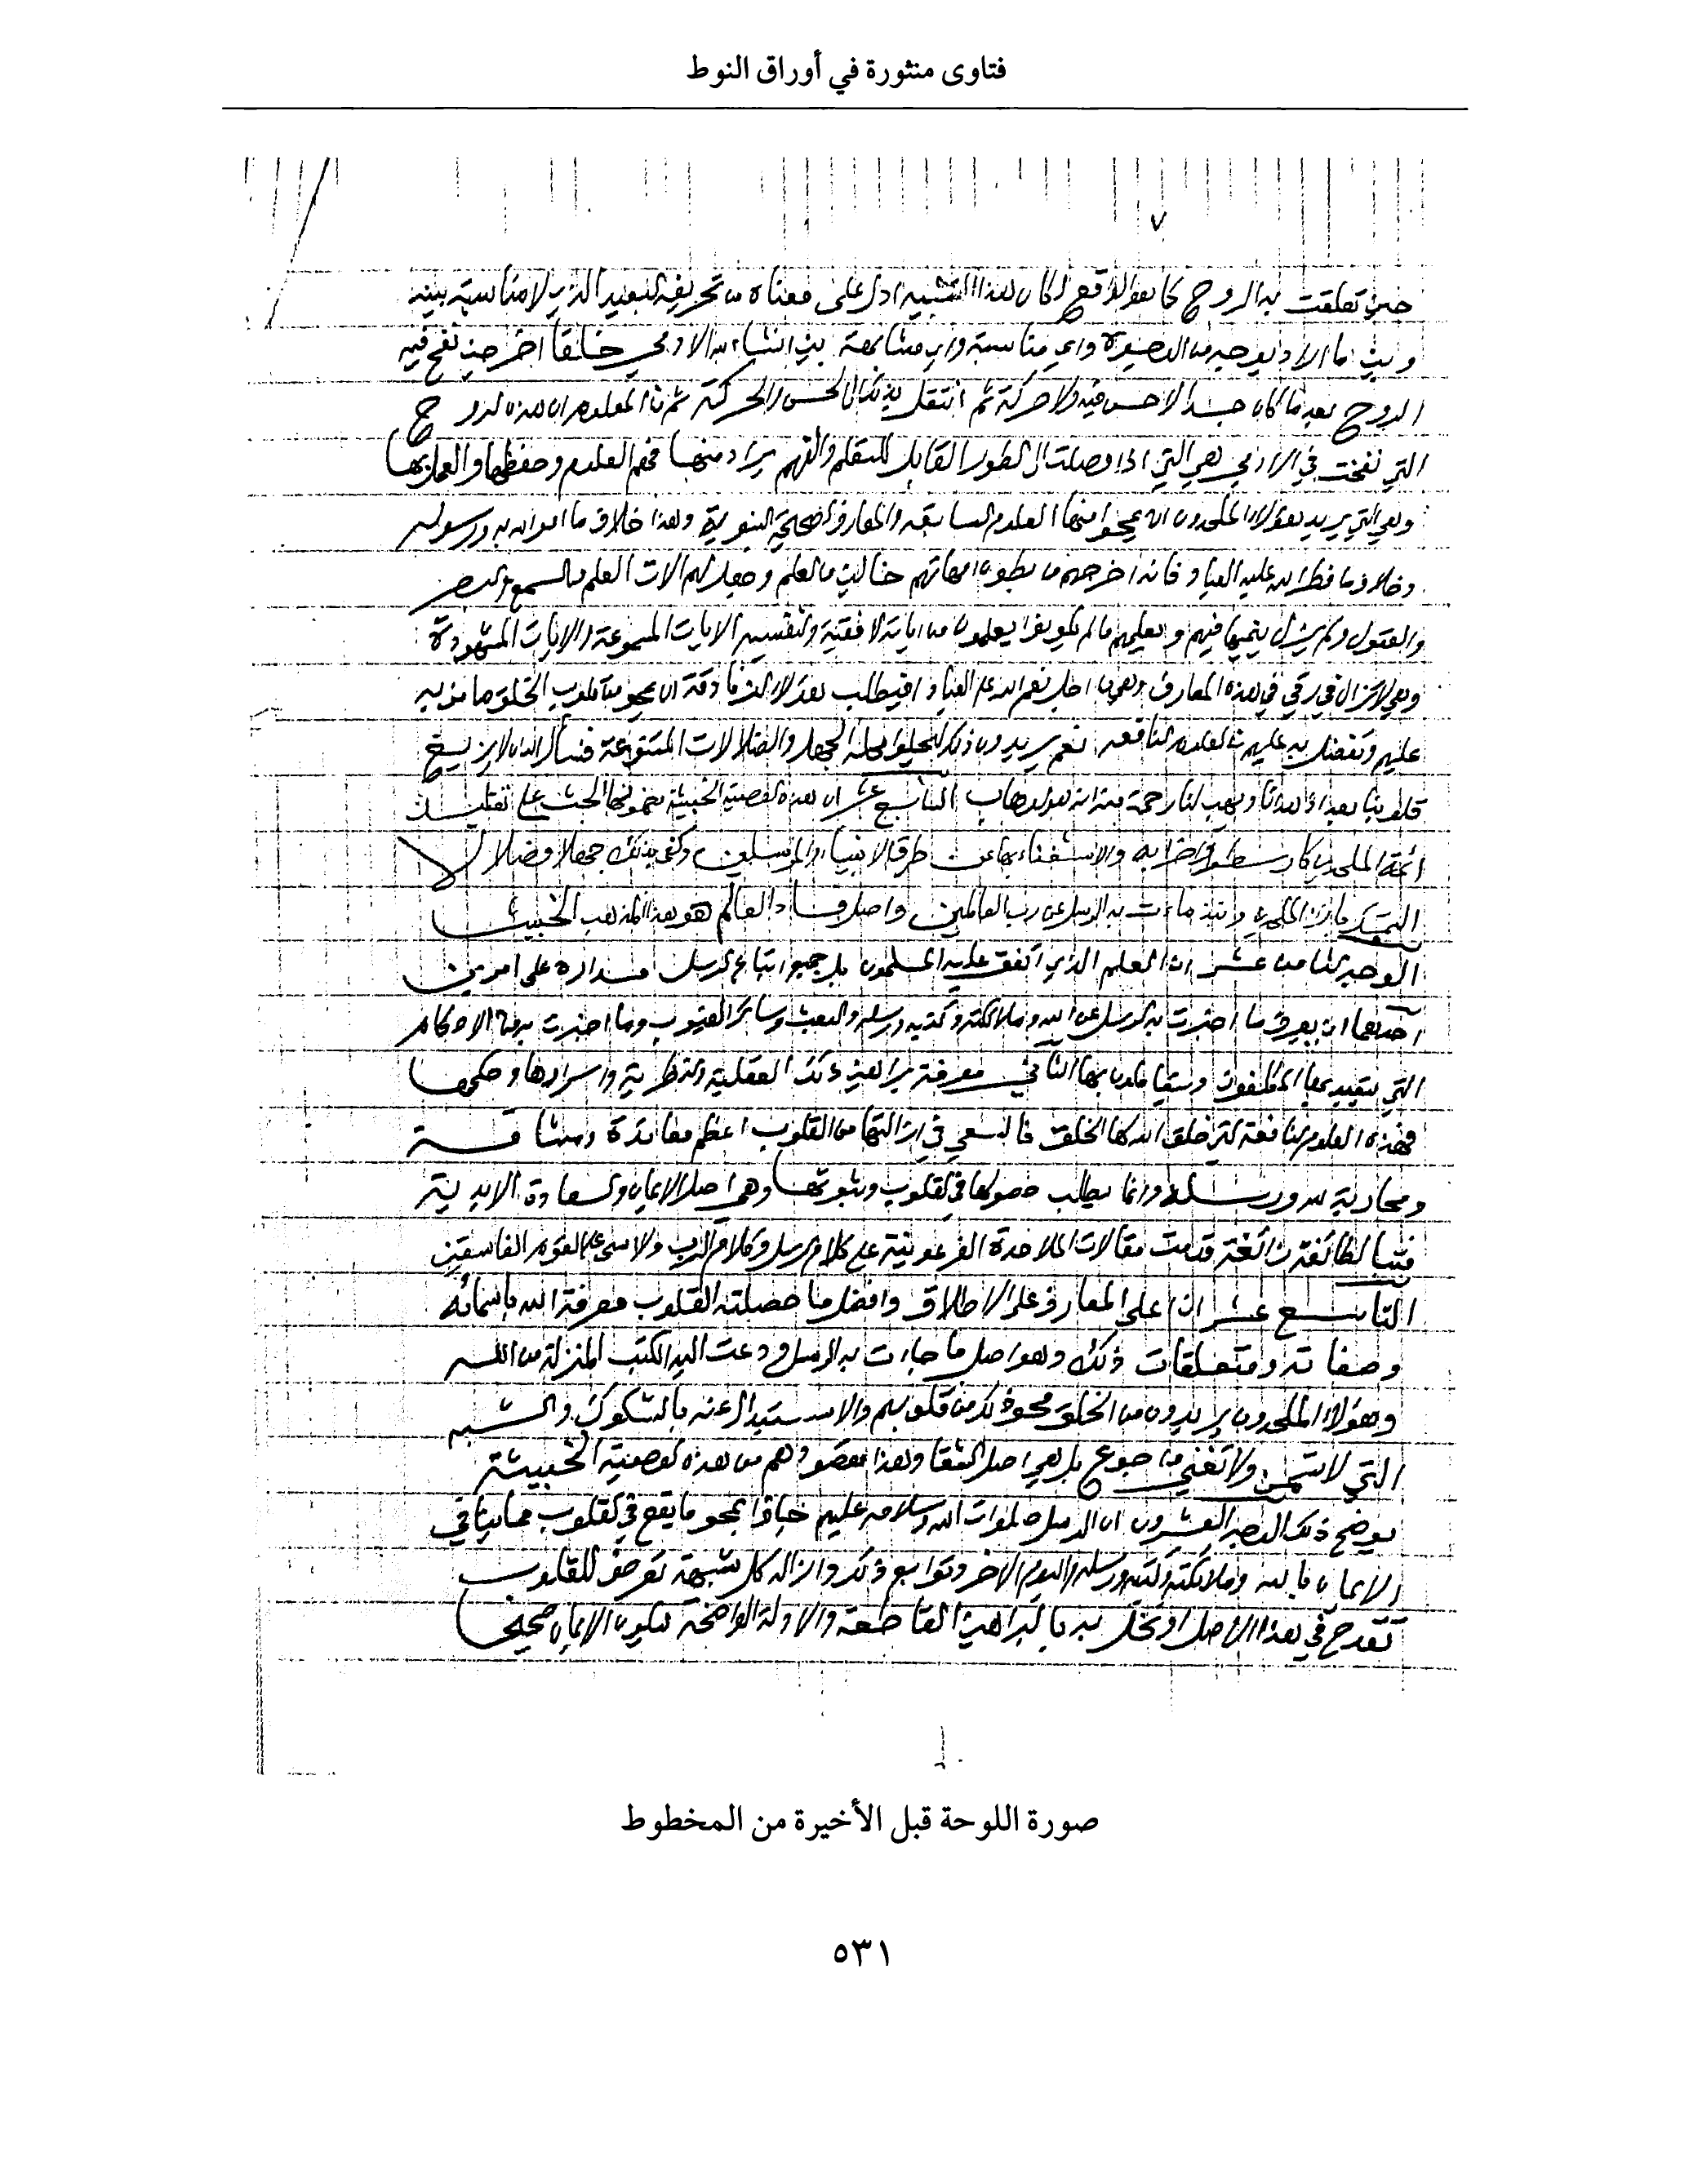 فتاوى منثورة في أوراق النوط
٧
حين تعلقت به الروح كما هو الواقع لكان هذا التشبيه ادل على معناه من تحريفه البعيد الذي لا مناسبة بينه
وبين ما اراد بوجه من الوجوه واي مناسبة واي مشابهة بين انشاء الله الادمي خلقا اخر حين نفخ فيه
الروح بعد ما كان جسدا لا حس فيه ولا حركة ثم انتقل بذلك الى الحس والحركة ثم من المعلوم ان هذه الروح
التي نفخت في الادمي هي التي اذا وصلت الى الطور القابل للتعلم والفهم يراد منها فهم العلوم وحفظها والعمل بها
وهي التي يريد هؤلاء الملحدون ان يمحوا منها العلوم السابقة والمعارف الصحيحة النبوية وهذا خلاف ما امر الله به ورسوله
وخلاف ما فطر الله عليه العباد فانه اخرجهم من بطون امهاتهم خالين من العلم وجعل لهم الات العلم من السمع والبصر
والعقول ولم يزل ينميها فيهم ويعلمهم ما لم يكونوا يعلمون من اياته الافقية والنفسية الايات المسموعة والايات المشهودة
وهي لا تزال في رقي في هذه المعارف وهي من اجل نعم الله على العباد افيطلب هؤلاء الزنادقة ان يمحو من قلوب الخلق ما من به
عليهم وتفضل به عليهم من العلوم النافعة نعم يريدون ذلك ليحلوا محله الجهل والضلالات المتنوعة فنسأل الله ان لا يزيغ
قلوبنا بعد اذ هدانا ويهب لنا رحمة منه انه هو الوهاب السابع عشر ان هذه القضية الخبيثة مضمونها الحث على تقليد
أئمة الملحدين كارسطو واضرابه والاستغناء بها عن طرق الانبياء والمرسلين وكفى بذلك جهلا وضلالا
التمسك بآراء الملحدين ونبذ ما جاءت به الرسل عن رب العالمين واصل فساد العالم هو هذا المذهب الخبيث
الوجه الثامن عشر ان العلم الذي اتفق عليه المسلمون بل جميع اتباع الرسل مداره على امرين
احدهما ان يعرف ما اخبرت به الرسل عن الله وملائكته وكتبه ورسله والبعث وسائر الغيوب وما اخبرت به من الاحكام
التي يتعبد بها المكلفون ويتعاملون بها الثاني معرفة براهين ذلك العقلية والنظرية واسرارها وحكمها
فهذه العلوم النافعة التي خلق الله لها الخلق فالسعي في ازالتها من القلوب اعظم معاندة ومشاقة
ومحاربة لله ورسله وانما يطلب حصولها في القلوب وثبوتها وهما اصل الايمان والسعادة الابدية
فتبا لطائفة زائغة قدمت مقالات الملاحدة الفرعونية على كلام الرسل وكلام الرب ولا اسى على القوم الفاسقين
التاسع عشر ان اعلى المعارف على الاطلاق وافضل ما حصلته القلوب معرفة الله باسمائه
وصفاته ومتعلقات ذلك وهو اصل ما جاءت به الرسل ودعت اليه الكتب المنزلة من الله
وهؤلاء الملحدون يريدون من الخلق محو ذلك من قلوبهم والاستبدال عنه بالشكوك والشبه
التي لا تسمن ولا تغني من جوع بل هي اصل الشقا وهذا مقصودهم من هذه القضية الخبيثة
يوضح ذلك الوجه العشرون ان الرسل صلوات الله وسلامه عليهم جاؤا بمحو ما يقع في القلوب مما ينافي
الايمان بالله وملائكته وكتبه ورسله واليوم الاخر وتوابع ذلك وازالة كل شبهة تعرض للقلوب
تقدح في هذا الاصل او تخل به بالبراهين القاطعة والادلة الواضحة ليكون الايمان صحيحا
صورة اللوحة قبل الأخيرة من المخطوط
٥٣١